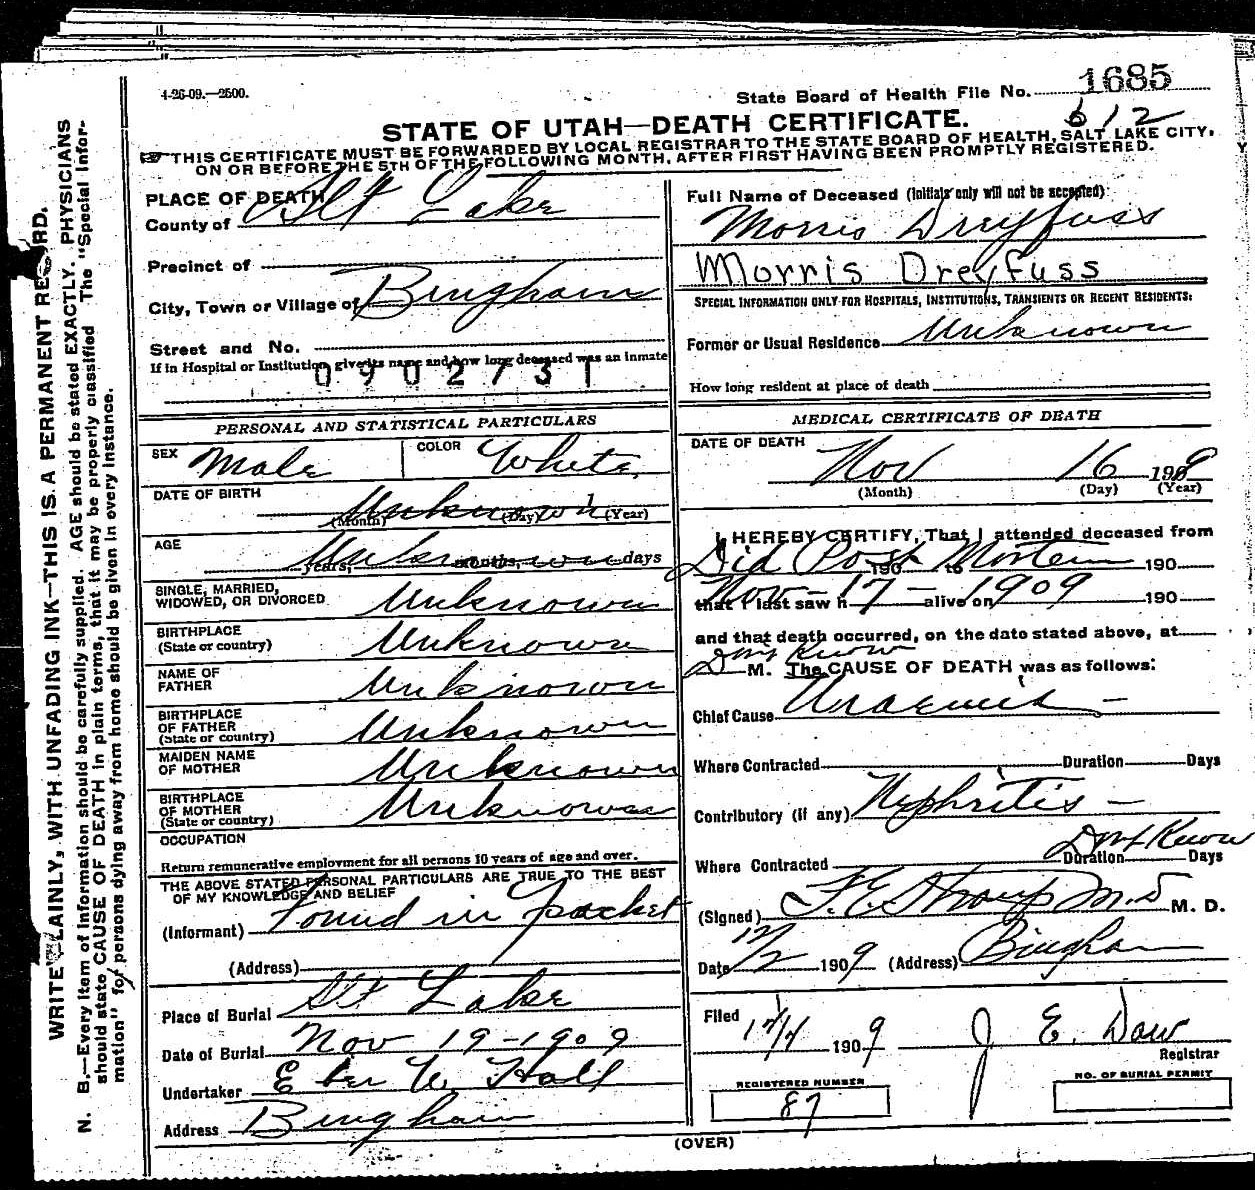 4-26-09.—2500.
State Board of Health File No. 1685
612
STATE OF UTAH—DEATH CERTIFICATE.
THIS CERTIFICATE MUST BE FORWARDED BY LOCAL REGISTRAR TO THE STATE BOARD OF HEALTH, SALT LAKE CITY,
ON OR BEFORE THE 5TH OF THE FOLLOWING MONTH, AFTER FIRST HAVING BEEN PROMPTLY REGISTERED.
WRITE PLAINLY, WITH UNFADING INK—THIS IS A PERMANENT RECORD.
N. B.—Every item of information should be carefully supplied. AGE should be stated EXACTLY. PHYSICIANS
should state CAUSE OF DEATH in plain terms, that it may be properly classified. The "Special Infor-
mation" for persons dying away from home should be given in every instance.
PLACE OF DEATH
County of Slt Lake
Precinct of
City, Town or Village of Bingham
Street and No.
If in Hospital or Institution give its name and how long deceased was an inmate
0902731
PERSONAL AND STATISTICAL PARTICULARS
SEX Male COLOR White
DATE OF BIRTH Unknown 1
(Month) (Day) (Year)
AGE Unknown
years, months, days
SINGLE, MARRIED,
WIDOWED, OR DIVORCED Unknown
BIRTHPLACE
(State or country) Unknown
NAME OF
FATHER Unknown
BIRTHPLACE
OF FATHER
(State or country) Unknown
MAIDEN NAME
OF MOTHER Unknown
BIRTHPLACE
OF MOTHER
(State or country) Unknown
OCCUPATION
Return remunerative employment for all persons 10 years of age and over.
THE ABOVE STATED PERSONAL PARTICULARS ARE TRUE TO THE BEST
OF MY KNOWLEDGE AND BELIEF
(Informant) Found in Pocket
(Address)
Place of Burial Slt Lake
Date of Burial Nov 19-1909
Undertaker Eber W. Hall
Address Bingham
Full Name of Deceased (Initials only will not be accepted)
Morris Dreyfuss
Morris Dreyfuss
SPECIAL INFORMATION ONLY FOR HOSPITALS, INSTITUTIONS, TRANSIENTS OR RECENT RESIDENTS:
Former or Usual Residence Unknown
How long resident at place of death
MEDICAL CERTIFICATE OF DEATH
DATE OF DEATH
Nov 16 1909
(Month) (Day) (Year)
I HEREBY CERTIFY, That I attended deceased from
Did Post Mortem
190 to 190
Nov-17-1909
that I last saw h alive on 190
and that death occurred, on the date stated above, at
Dont Know
M. The CAUSE OF DEATH was as follows:
Chief Cause Uraemia -
Where Contracted Duration Days
Contributory (if any) Nephritis -
Dont Know
Where Contracted Duration Days
(Signed) M.D M. D.
Date 12/2 1909 (Address) Bingham
Filed
12/4 1909 J E. Daw
Registrar
REGISTERED NUMBER
87
NO. OF BURIAL PERMIT
(OVER)